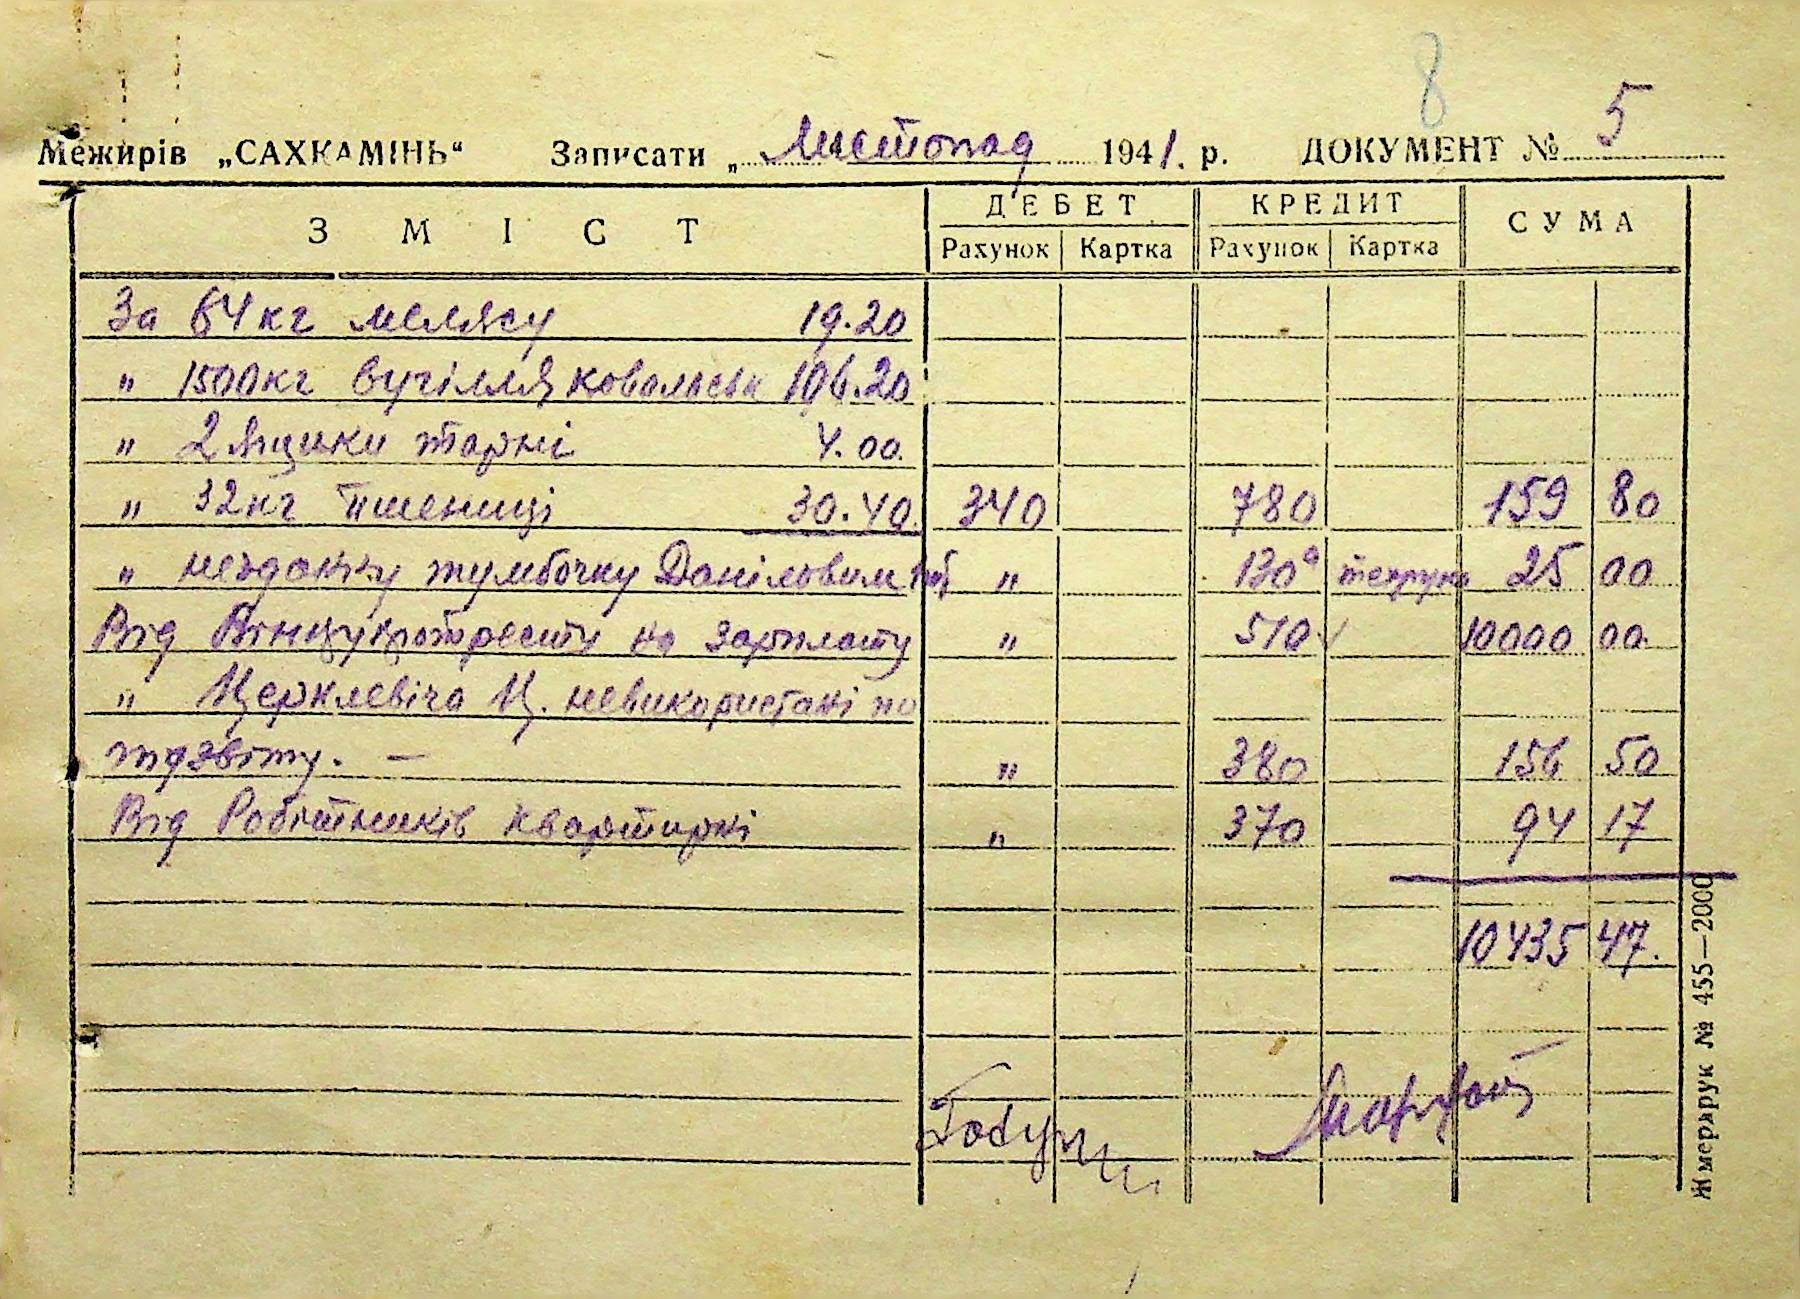 8
Межирів „САХКАМІНЬ“ Записати „ Листопад 1941. р. ДОКУМЕНТ № 5
ЗМІСТ ДЕБЕТ КРЕДИТ СУМА
Рахунок Картка Рахунок Картка
За 64 кг мелясу 19.20
" 1500 кг вугілля ковальськ 106.20
" 2 Ящики тарні 4.00.
" 32 кг пшениці 30.40. 340 780 159 80
" нездану тумбочку Даніловим " 130 25 00
Від Вінцукротресту на зарплату " 510 10000 00
" Ц. невикористані по
" 380 156 50
Від Робітників квартирні " 370 94 17
10435 47.
Жмердрук № 455—2000